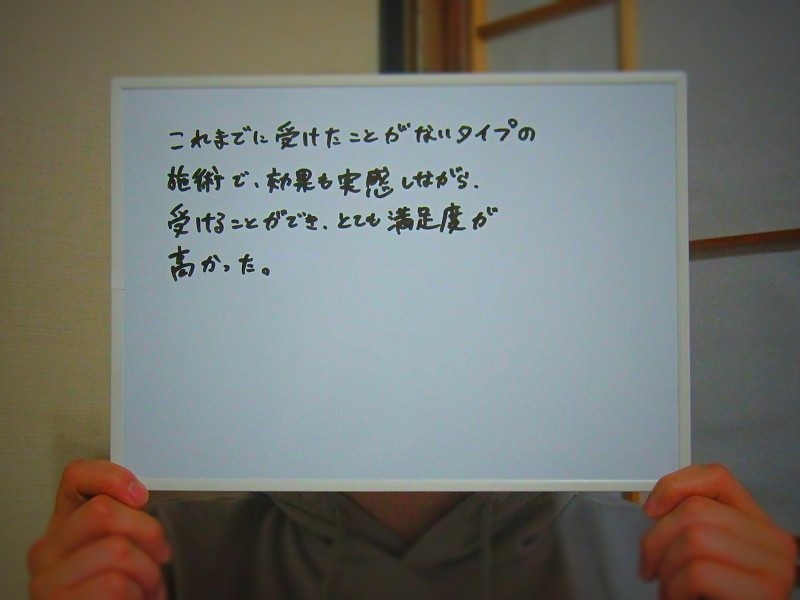 これまでに受けたことがないタイプの
施術で、効果も実感しながら、
受けることができ、とても満足度が
高かった。